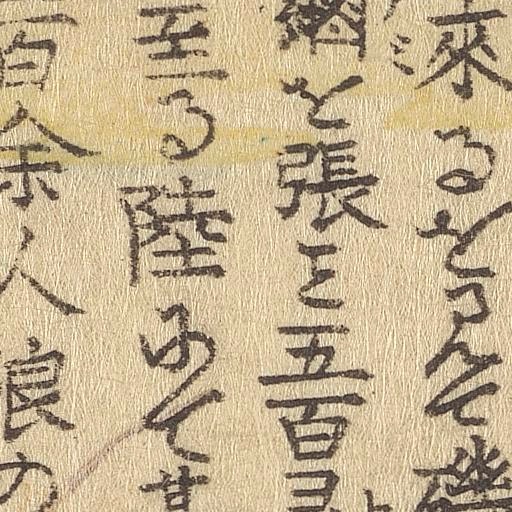 來るを て磯
網を張こと五百
至る陸にて
百余人浪の